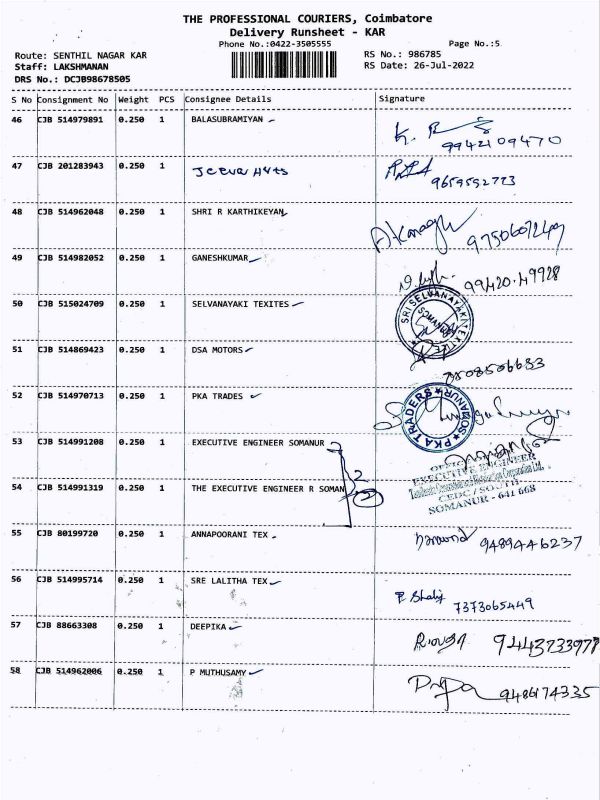 THE PROFESSIONAL COURIERS, Coimbatore
Delivery Runsheet - KAR
Phone No.:0422-3505555 Page No.:5
Route: SENTHIL NAGAR KAR RS No.: 986785
Staff: LAKSHMANAN RS Date: 26-Jul-2022
DRS No.: DCJB98678505
S No Consignment No Weight PCS Consignee Details Signature
46 CJB 514979891 0.250 1 BALASUBRAMIYAN
9942109470
47 CJB 201283943 0.250 1 Jeeva Arts
9659592773
48 CJB 514962048 0.250 1 SHRI R KARTHIKEYAN
9750607249
49 CJB 514982052 0.250 1 GANESHKUMAR
99420.49928
50 CJB 515024709 0.250 1 SELVANAYAKI TEXITES
SRI SELVANAYAKI TEXTILE
SOMANUR
51 CJB 514869423 0.250 1 DSA MOTORS
52 CJB 514970713 0.250 1 PKA TRADES
PKA TRADERS SOMANUR
53 CJB 514991208 0.250 1 EXECUTIVE ENGINEER SOMANUR
2
EXECUTIVE ENGINEER
54 CJB 514991319 0.250 1 THE EXECUTIVE ENGINEER R SOMAN
CEDC / SOUTH
SOMANUR - 641 668
55 CJB 80199720 0.250 1 ANNAPOORANI TEX
9489446237
56 CJB 514995714 0.250 1 SRE LALITHA TEX
7373065449
57 CJB 88663308 0.250 1 DEEPIKA
9443733977
58 CJB 514962006 0.250 1 P MUTHUSAMY
9486174335